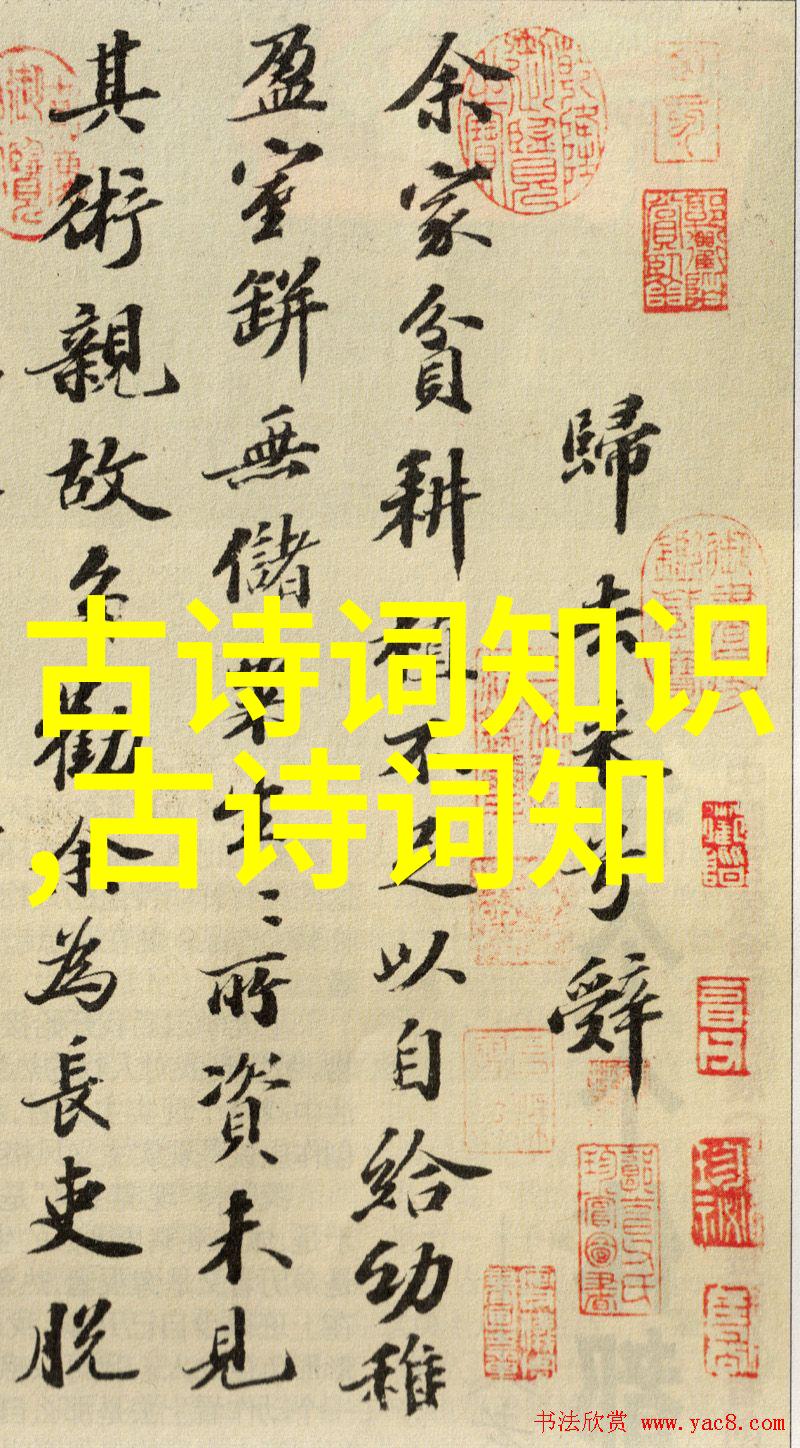 歸去来兮辭
余家貧耕植不足以自給幼稚
盈室缾無儲粟生〻所資未見
其術親故多勸余為長吏脫
古诗词知识
,古诗词知
书法欣赏 www.yac8.com